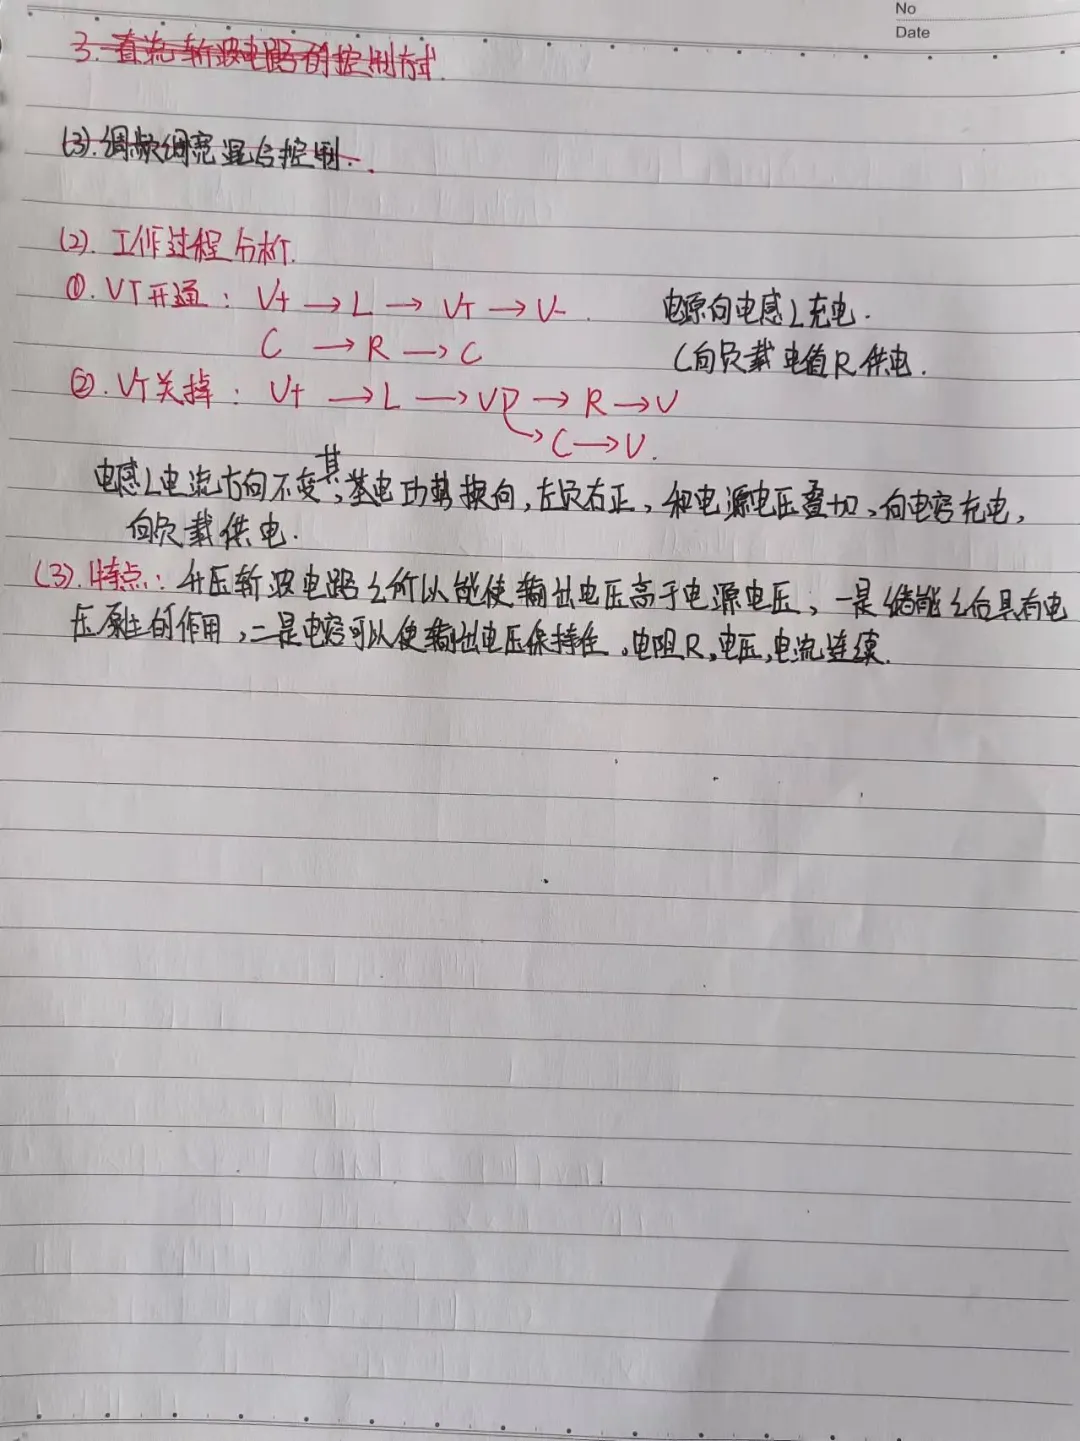 No
Date
3. 直流斩波电路的控制方式.
(3).调频调宽混合控制.
(2). 工作过程分析.
①. VT开通: V+ → L → VT → V- . 电源向电感L充电.
C → R → C C向负载电值R供电.
②. VT关掉: V+ → L → VD → R → V
→ C → V.
其
电感L电流方向不变,基电功势换向,左负右正,和电源电压叠切,向电容充电,
向负载供电.
(3).特点: 升压斩波电路之所以能使输出电压高于电源电压,一是储能之后具有电
压泵生的作用,二是电容可以使输出电压保持住,电阻R,电压,电流连续.